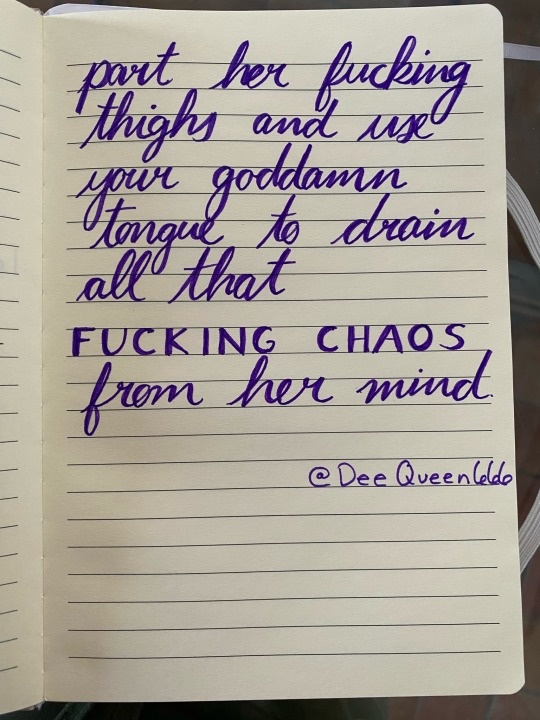 part her fucking
thighs and use
your goddamn
tongue to drain
all that
FUCKING CHAOS
from her mind.
@DeeQueen666